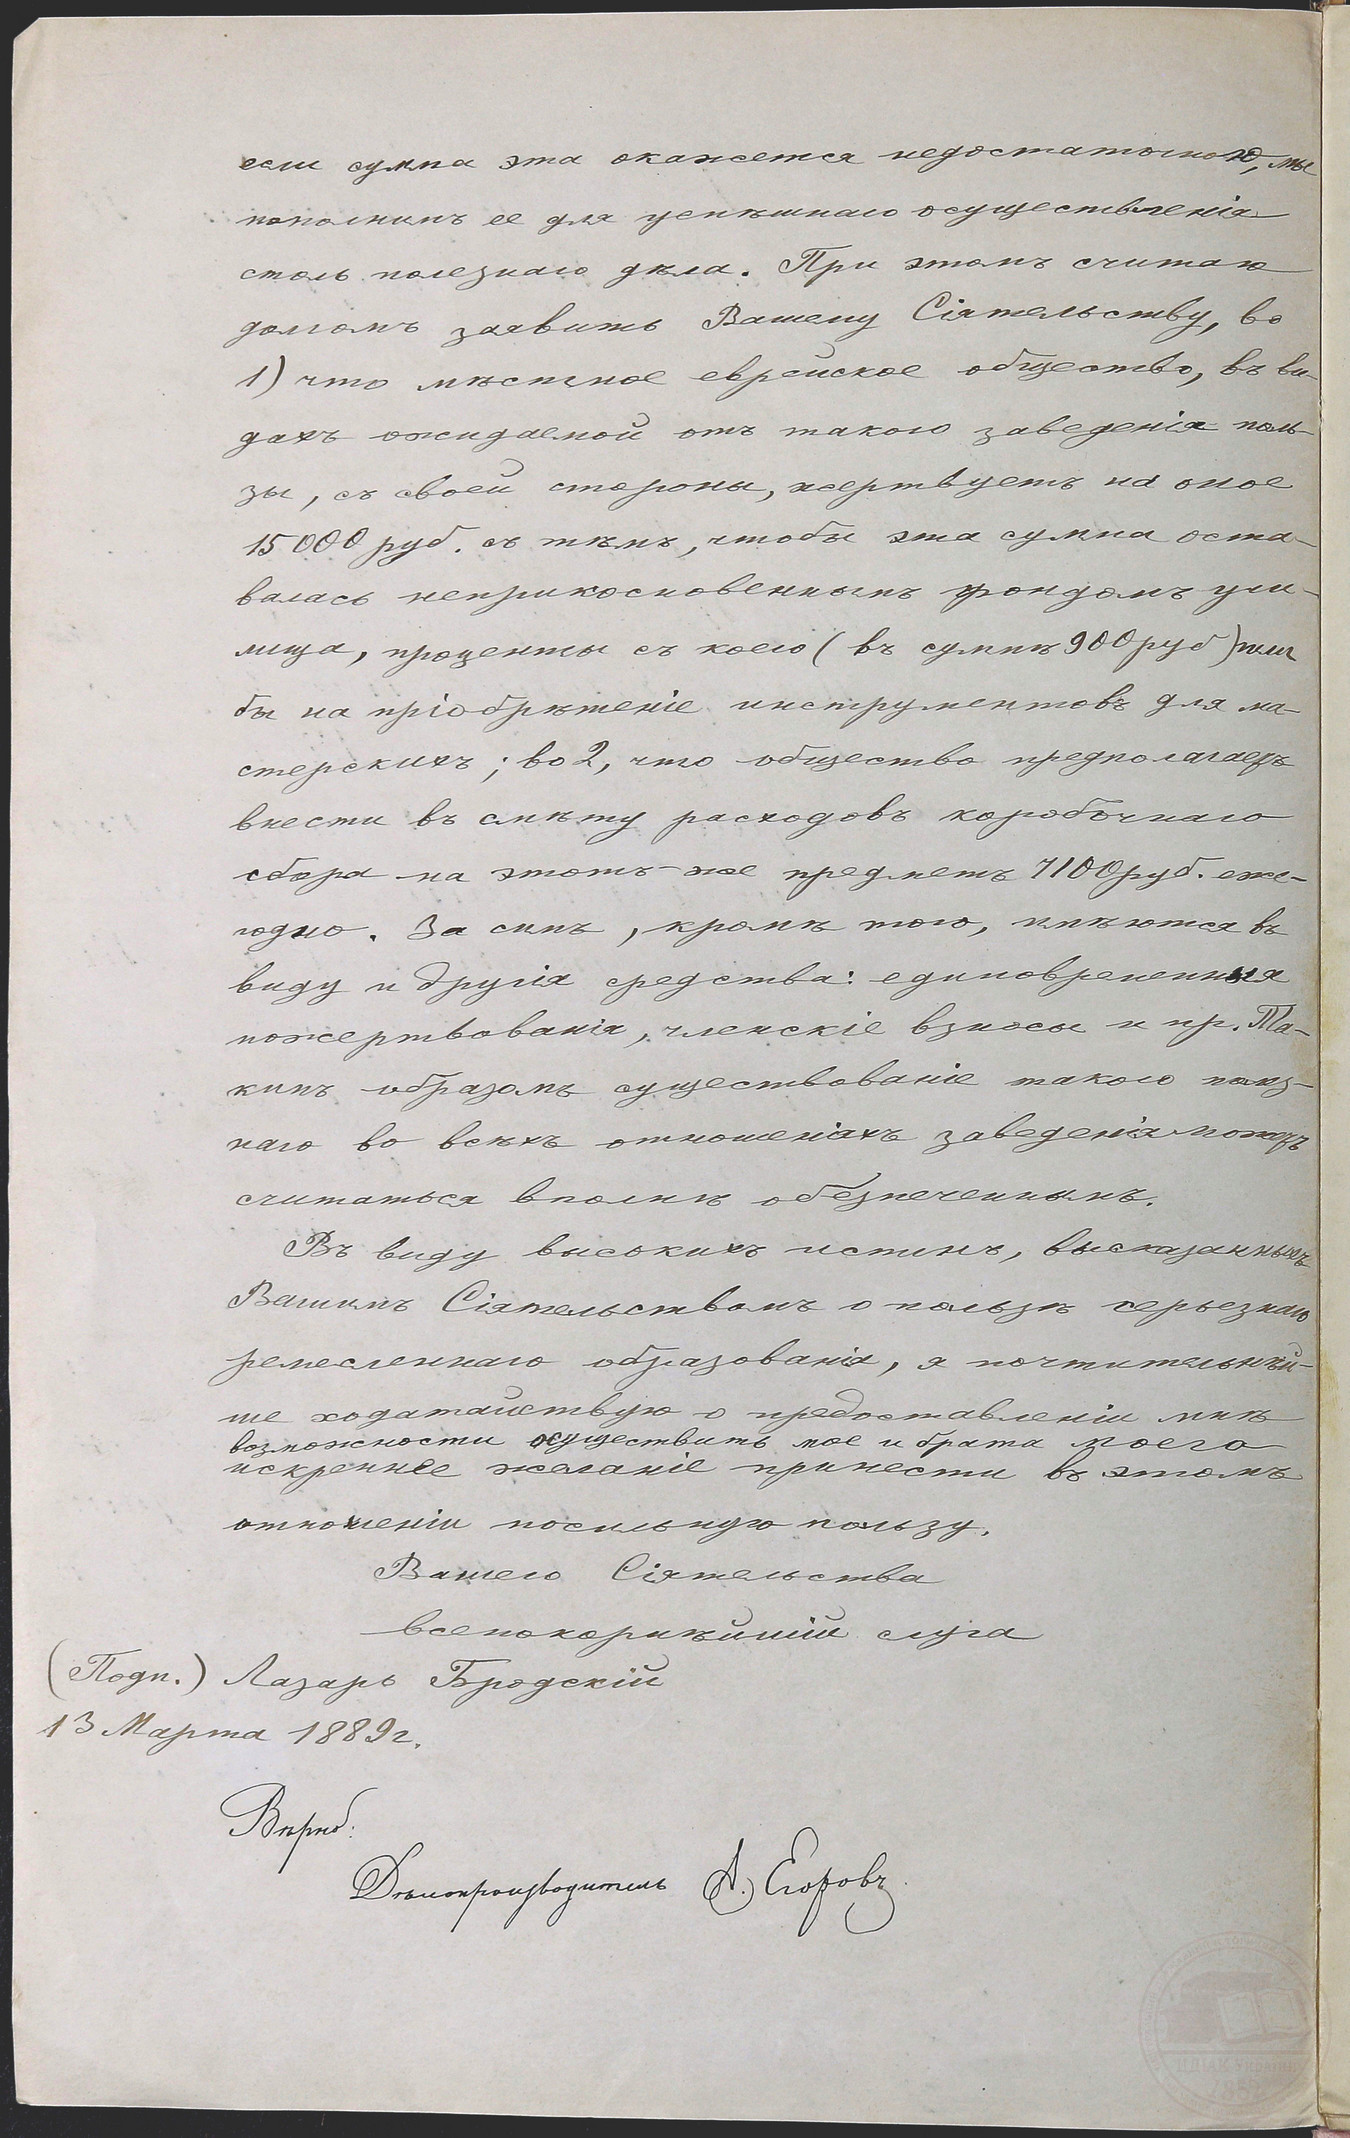 если сумма эта окажется недостаточною, мы
пополнимъ ее для успѣшнаго осуществленія
столь полезнаго дѣла. При этомъ считаю
долгомъ заявить Вашему Сіятельству, во
1) что мѣстное еврейское общество, въ ви-
дахъ ожидаемой отъ такого заведенія поль-
зы, съ своей стороны, жертвуетъ на оное
15000 руб. съ тѣмъ, чтобы эта сумма оста-
валась неприкосновеннымъ фондомъ учи-
лища, проценты съ коего (въ суммѣ 900 руб) шли
бы на пріобрѣтеніе инструментовъ для ма-
стерскихъ; во 2, что общество предполагаетъ
внести въ смѣту расходовъ коробочнаго
сбора на этотъ-же предметъ 7100 руб. еже-
годно. За симъ, кромѣ того, имѣются въ
виду и другія средства: единовременныя
пожертвованія, членскіе взносы и пр. Та-
кимъ образомъ существованіе такого полез-
наго во всѣхъ отношеніяхъ заведенія можетъ
считаться вполнѣ обезпеченнымъ.
Въ виду высокихъ истинъ, высказанныхъ
Вашимъ Сіятельствомъ о пользѣ серьезнаго
ремесленнаго образованія, я почтительнѣй-
ше ходатайствую о предоставленіи мнѣ
возможности осуществить мое и брата моего
искреннее желаніе принести въ этомъ
отношеніи посильную пользу.
Вашего Сіятельства
всепокорнѣйшій слуга
(Подп.) Лазарь Бродскій
13 Марта 1889 г.
Вѣрно:
Дѣлопроизводитель А. Егоровъ
ЦДІАК України